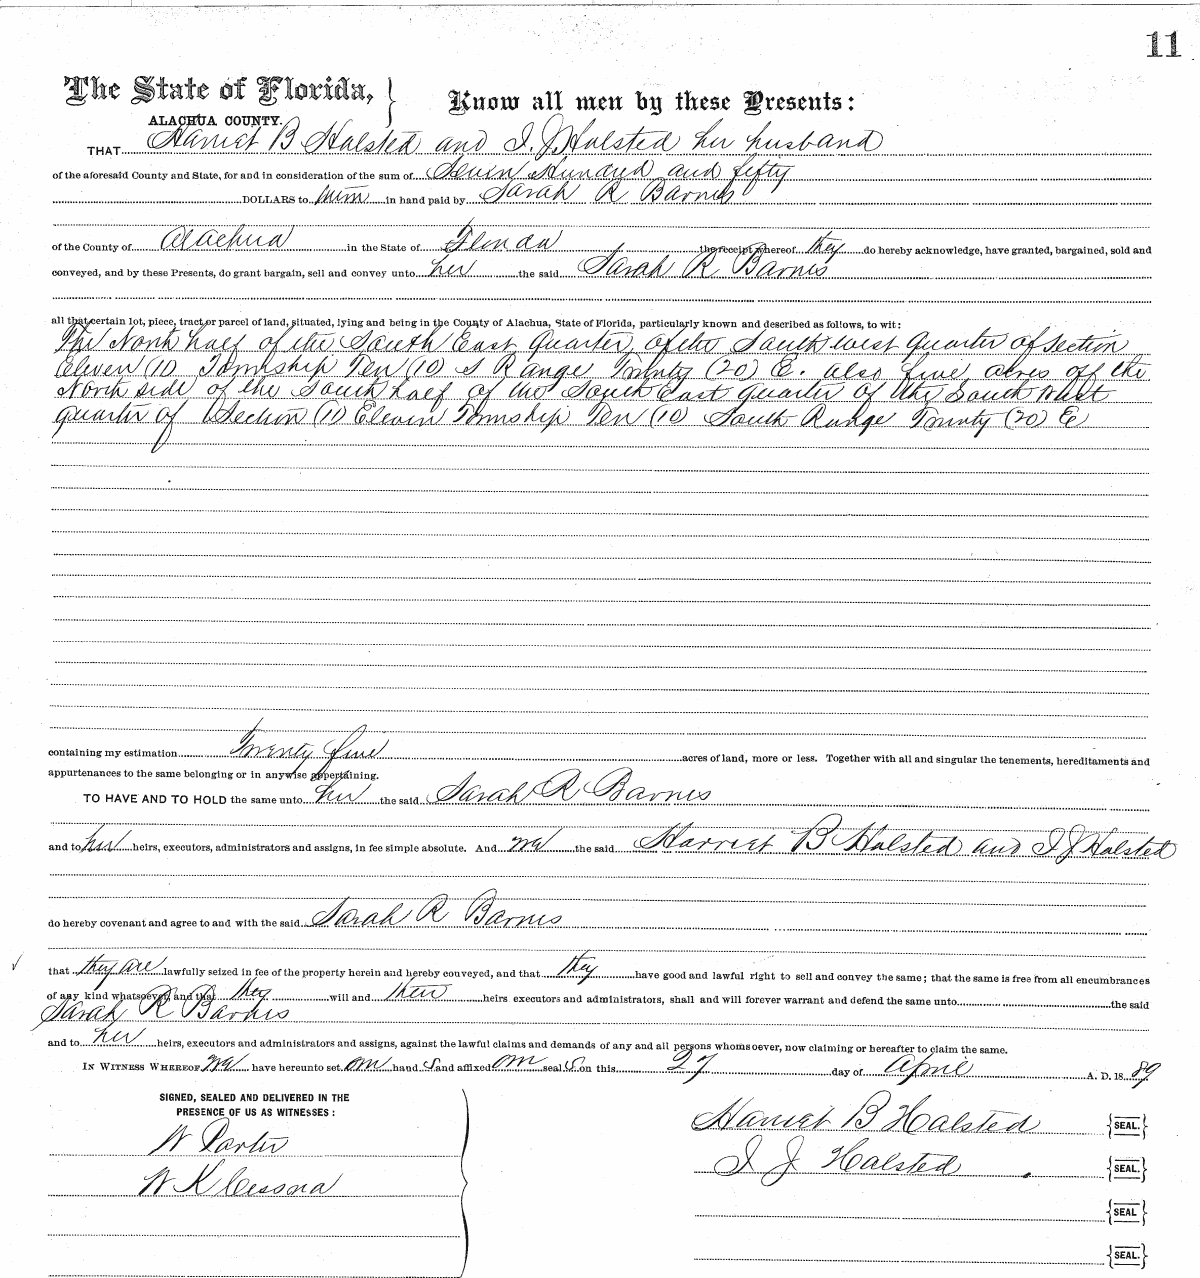 11
The State of Florida,
ALACHUA COUNTY.
Know all men by these Presents:
THAT Harriet B Halsted and I. J. Halsted her husband
of the aforesaid County and State, for and in consideration of the sum of Seven Hundred and fifty
DOLLARS to them in hand paid by Sarah R Barnes
of the County of Alachua in the State of Florida the receipt whereof they do hereby acknowledge, have granted, bargained, sold and
conveyed, and by these Presents, do grant bargain, sell and convey unto her the said Sarah R Barnes
all that certain lot, piece, tract or parcel of land, situated, lying and being in the County of Alachua, State of Florida, particularly known and described as follows, to wit:
The North half of the South East quarter of the South west quarter of Section
Eleven (11) Township Ten (10) S Range Twenty (20) E. also five acres off the
North side of the South half of the South East quarter of the South West
quarter of Section (11) Eleven Township Ten (10) South Range Twenty (20) E
containing my estimation Twenty five acres of land, more or less. Together with all and singular the tenements, hereditaments and
appurtenances to the same belonging or in anywise appertaining.
TO HAVE AND TO HOLD the same unto her the said Sarah R Barnes
and to her heirs, executors, administrators and assigns, in fee simple absolute. And we the said Harriet B Halsted and I J Halsted
do hereby covenant and agree to and with the said Sarah R Barnes
that they are lawfully seized in fee of the property herein and hereby conveyed, and that they have good and lawful right to sell and convey the same; that the same is free from all encumbrances
of any kind whatsoever, and that they will and their heirs executors and administrators, shall and will forever warrant and defend the same unto the said
Sarah R Barnes
and to her heirs, executors and administrators and assigns, against the lawful claims and demands of any and all persons whomsoever, now claiming or hereafter to claim the same.
IN WITNESS WHEREOF we have hereunto set our hand s and affixed our seal s on this 27 day of April A. D. 18 89
SIGNED, SEALED AND DELIVERED IN THE
PRESENCE OF US AS WITNESSES:
W Porter
W K Cessna
Harriet B Halsted SEAL.
I J Halsted SEAL.
SEAL
SEAL.